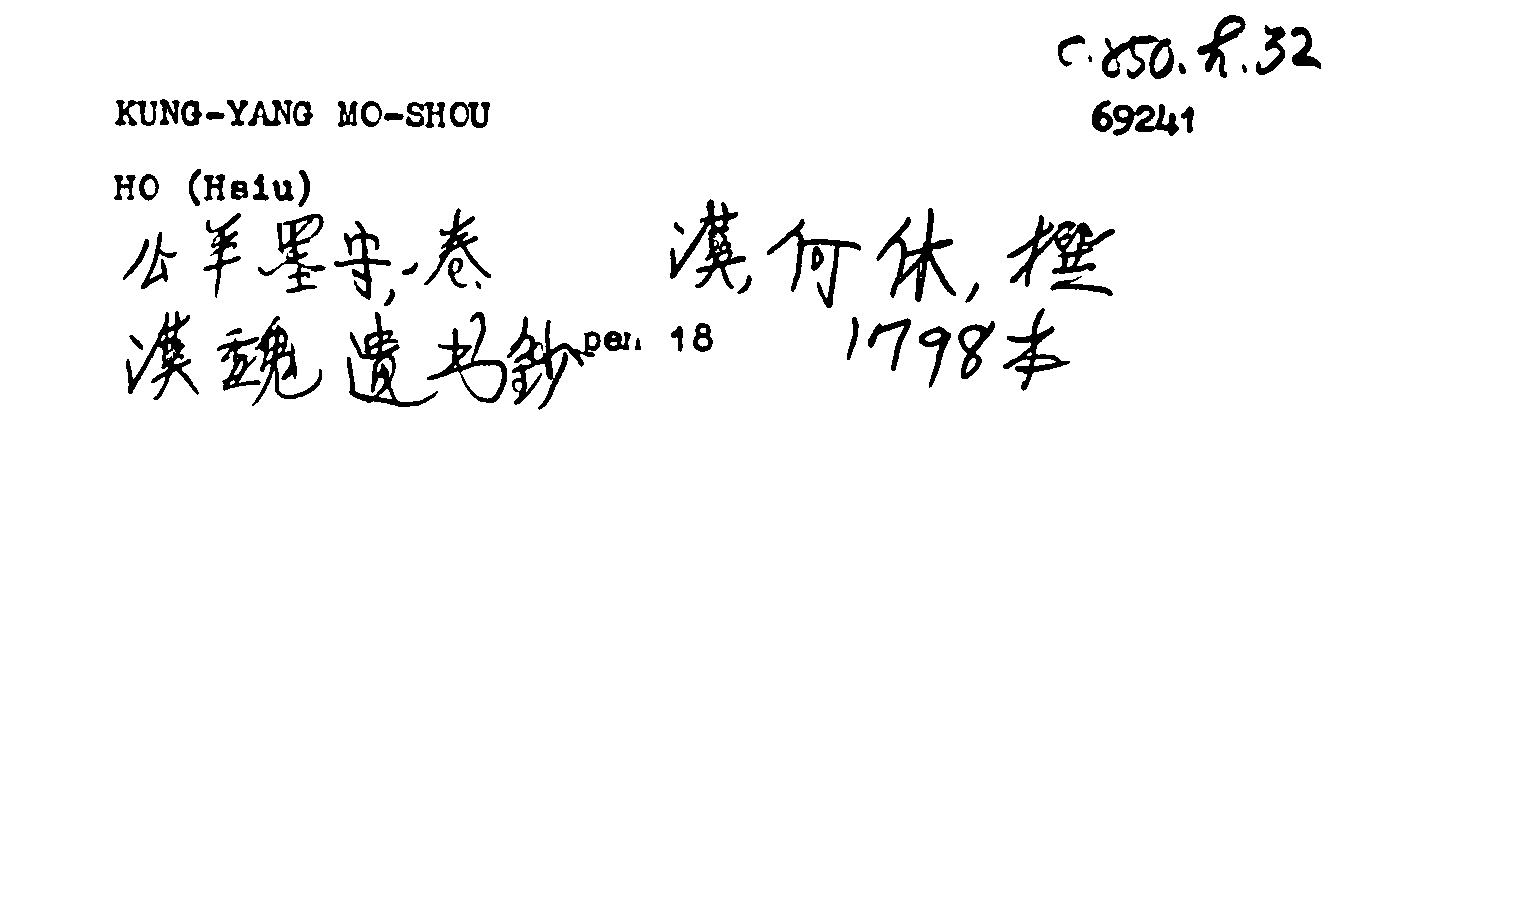 C.850.h.32
KUNG-YANG MO-SHOU
69241
HO (Hsiu)
公羊墨守,一卷. 漢,何休,撰
漢魏遺书鈔 pen 18 1798本